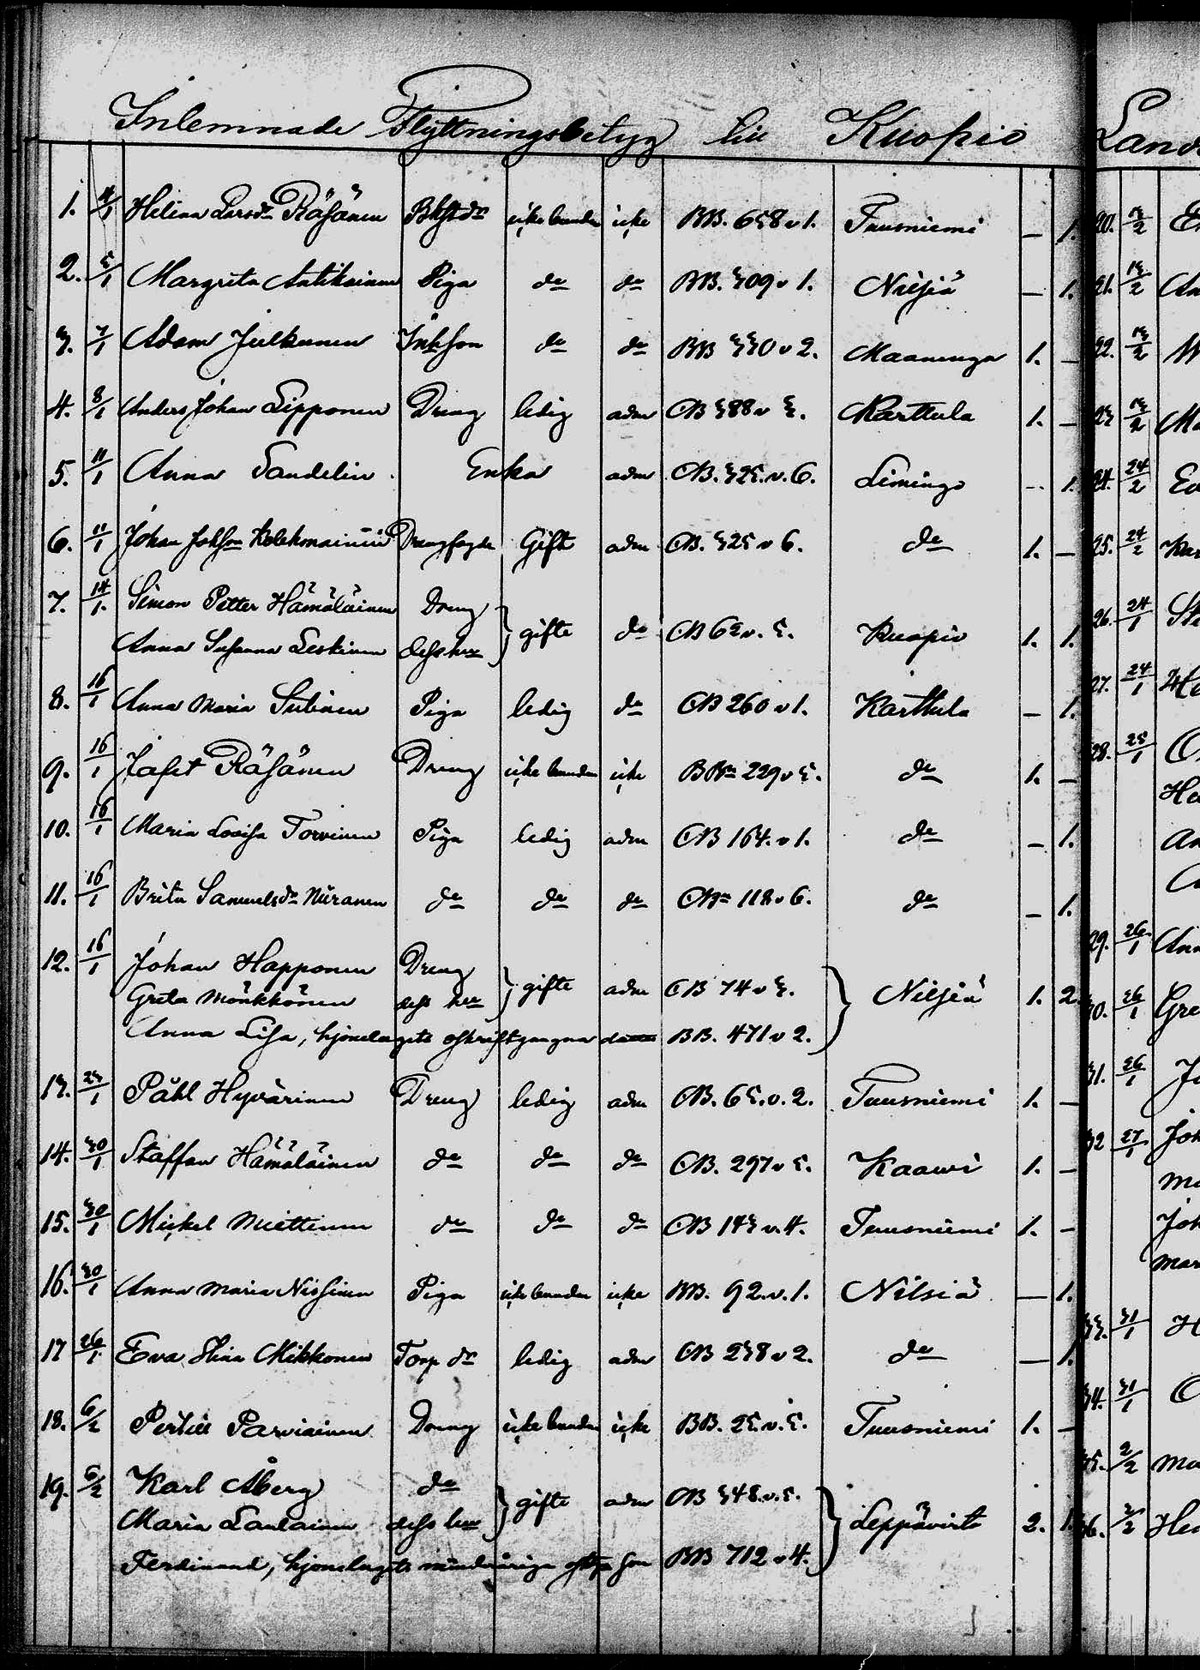 Inlemnade Flyttningsbetyg till Kuopio
1. 4/1 Helena Larsdr Räsänen icke bunden icke BB. 658 v 1. Tuusniemi — 1.
2. 5/1 Margreta Antikainen Piga do do BB. 309 v 1. Nilsiä — 1.
3. 7/1 Adam Julkunen Inhson do do BB 330 v 2. Maaninga 1. —
4. 8/1 Anders Johan Lipponen Dreng ledig adm CB 388 v 3. Karttula 1. —
5. 11/1 Anna Sandelin Enka adm CB. 325. v. 6. Limingo -- 1.
6. 11/1 Johan Johsson Kolehmainen Drengfogde Gift adm CB. 325 v 6. do 1. —
7. 14/1. Simon Petter Hämäläinen Dreng
gifte do CB 62 v. 5. Kuopio 1. 1.
Anna Susanna Leskinen dess hu
8. 16/1 Anna Maria Sutinen Piga ledig do CB 260 v 1. Karttula — 1.
9. 16/1 Jafet Räsänen Dreng icke bunden icke 229 v 5. do 1. —
10. 16/1 Maria Lovisa Torvinen Piga ledig adm CB 164. v 1. do — 1.
11. 16/1 Brita Samuelsdr Niiranen do do do 118 v 6. do — 1.
12. 16/1 Johan Happonen Dreng
Greta Mönkkönen dess hu gifte adm CB 74 v 3. Nilsiä 1. 2.
Anna Lisa, hjonelagets oskriftgangna BB. 471 v 2.
13. 23/1 Påhl Hyvärinen Dreng ledig adm CB. 65. v. 2. Tuusniemi 1. —
14. 30/1 Staffan Hämäläinen do do do CB. 297 v 5. Kaawi 1. —
15. 30/1 Mickel Miettinen do do do CB 143 v. 4. Tuusniemi 1. —
16. 30/1 Anna Maria Nissinen Piga icke bunden icke BB. 92. v. 1. Nilsiä — 1.
17 26/1. Eva Stina Mikkonen Torp dr ledig adm CB 238 v 2. do — 1.
18. 6/2 Pertil Parviainen Dreng icke bunden icke BB. 25. v. 5. Tuusniemi 1. —
19. 6/2 Karl Åberg do
gifte adm CB 348. v. 5.
Maria Laulainen dess hu Leppävirta 2. 1.
Ferdinand, hjonelagets minderårige son BB 712 v 4.
Land
20. 13/2
21. 13/2 An
22. 13/2
23 13/2 Ma
24. 24/2
25. 24/2
26. 24/1
27. 24/1 He
28. 25/1 O
29. 26/1 Ann
30. 26/1 Gre
31. 26/1 J
32 27/1 Joh
Joh
33. 31/1 H
34. 31/1 O
35. 2/2 Ma
36. 2/2 Hel